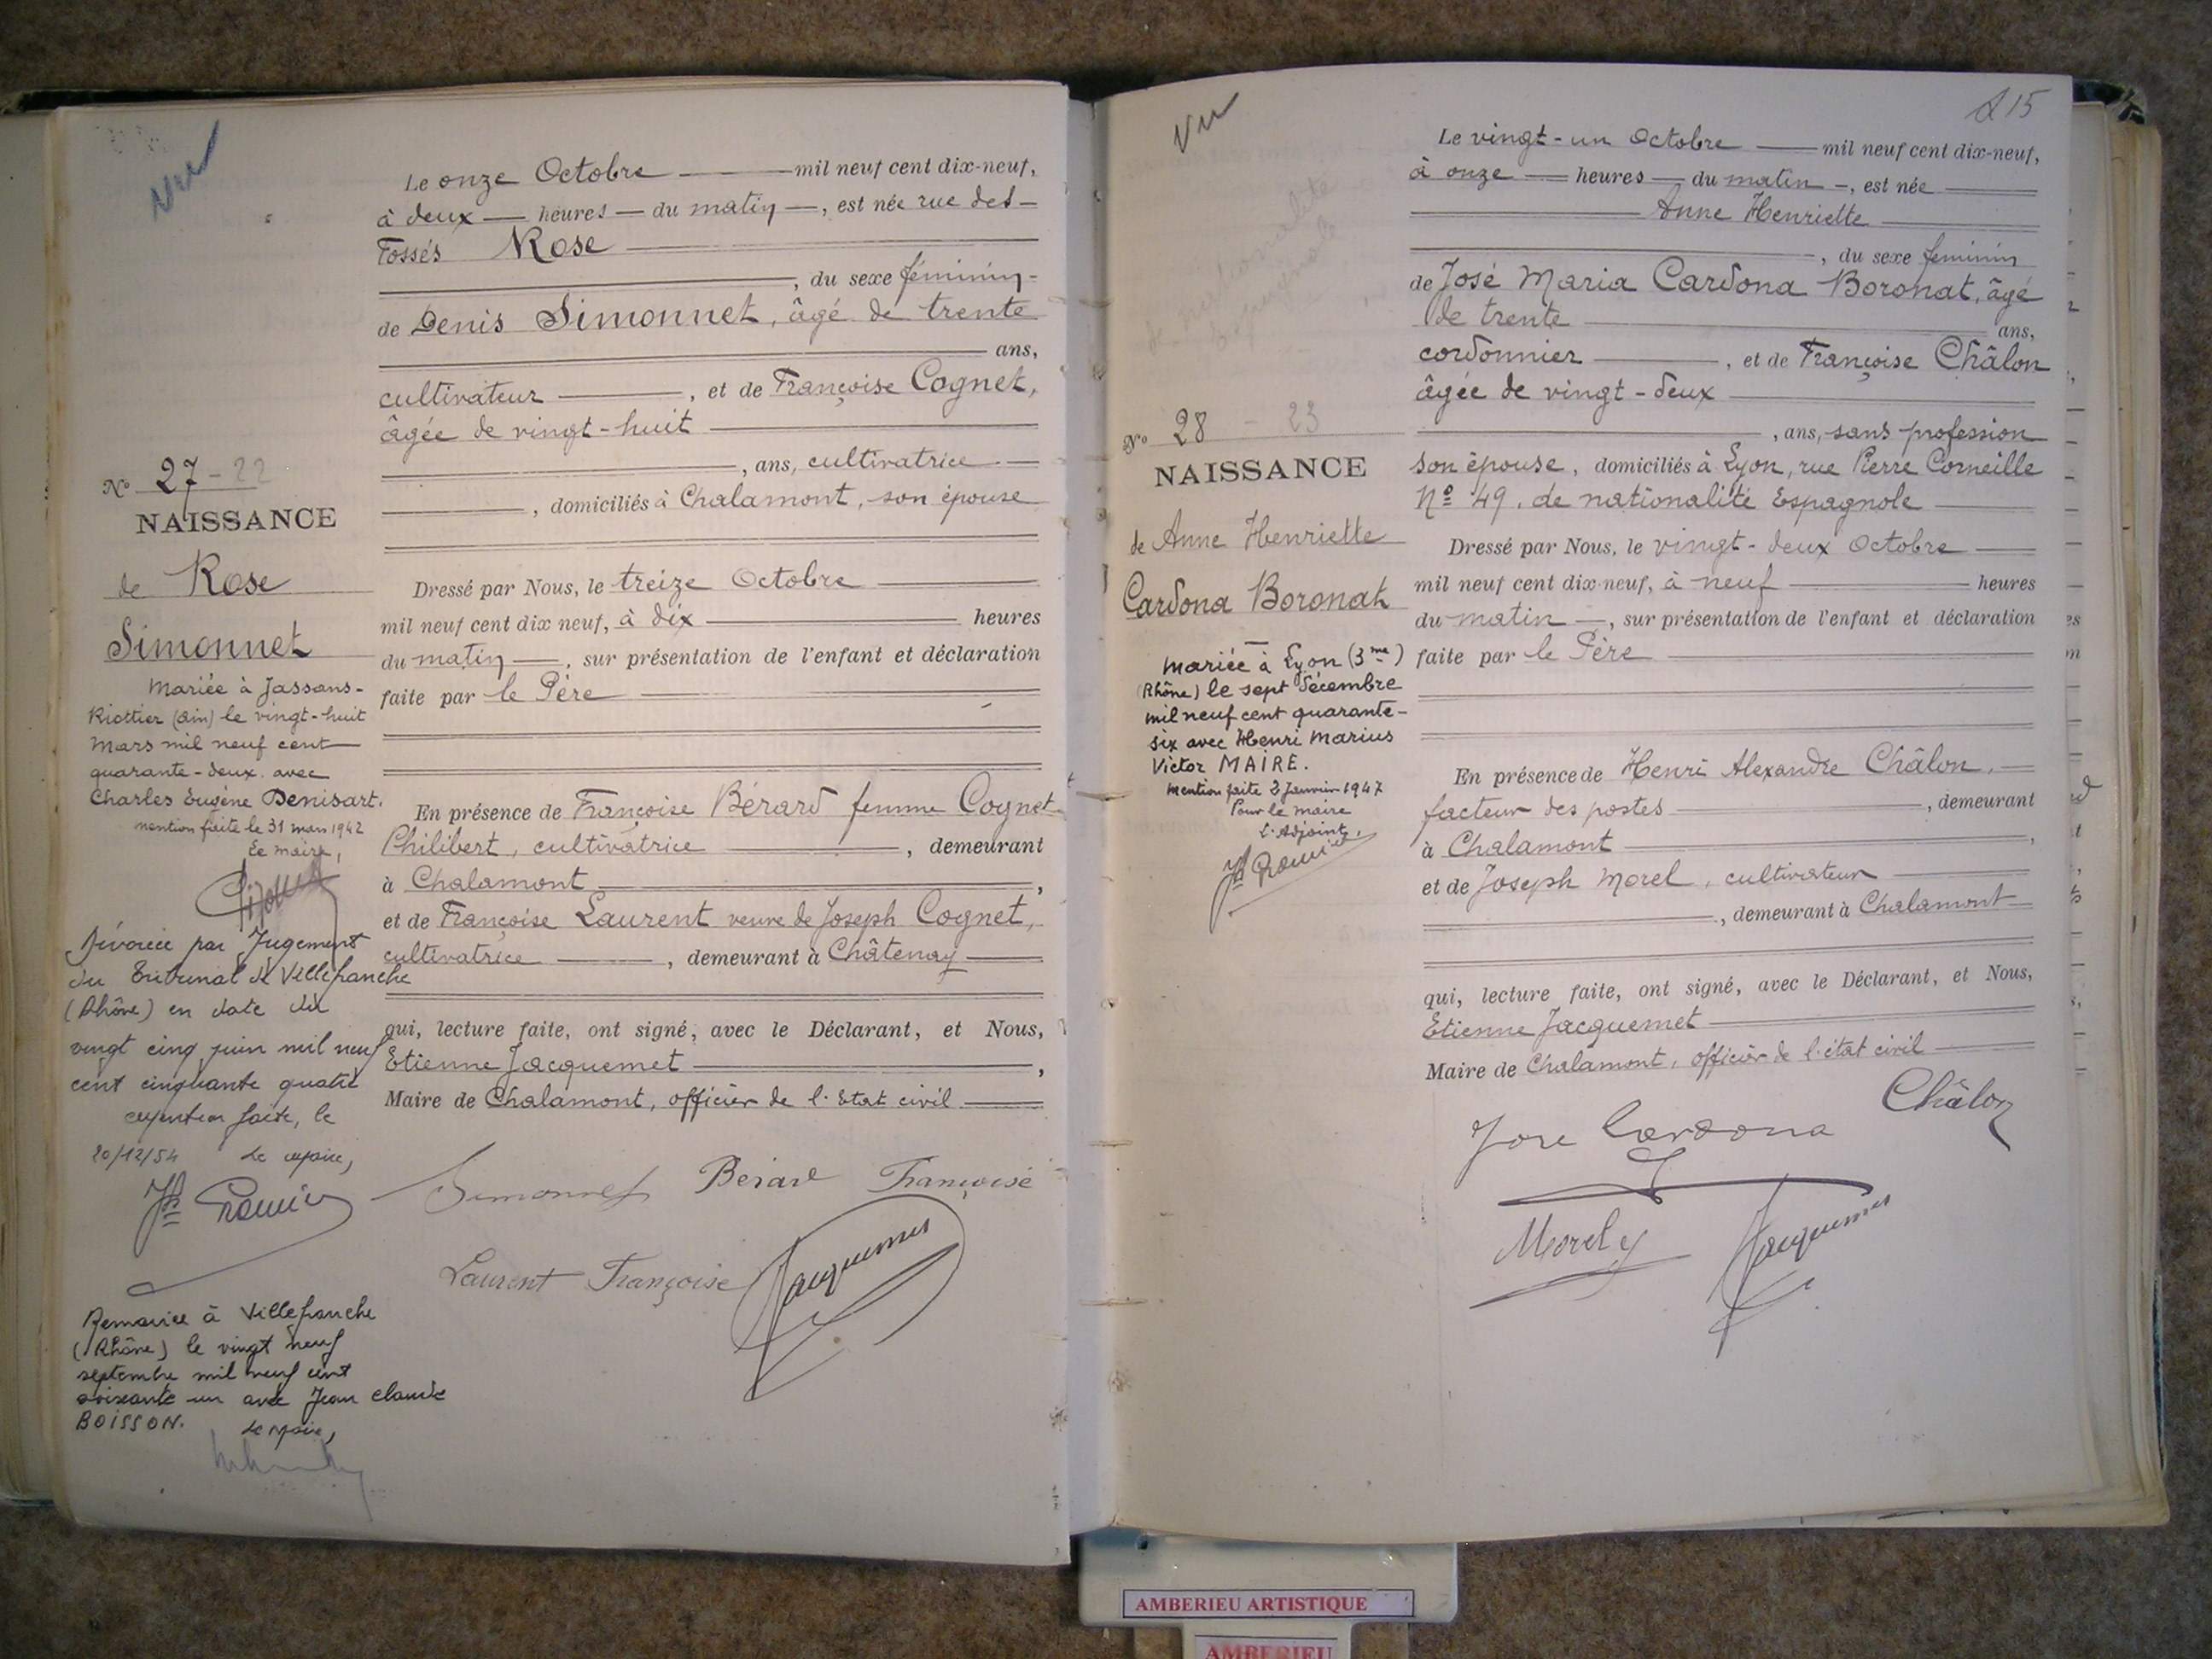 Vu
Le onze Octobre mil neuf cent dix-neuf,
à deux heures du matin, est née rue des
Fossés Rose
, du sexe féminin
de Denis Simonnet, âgé de trente
ans,
cultivateur, et de Françoise Cognet,
âgée de vingt-huit
, ans, cultivatrice
, domiciliés à Chalamont, son épouse
Dressé par Nous, le treize Octobre
mil neuf cent dix neuf, à dix heures
du matin, sur présentation de l'enfant et déclaration
faite par le Père
En présence de Françoise Bérard femme Cognet
Philibert, cultivatrice, demeurant
à Chalamont,
et de Françoise Laurent veuve de Joseph Cognet,
cultivatrice, demeurant à Châtenay
qui, lecture faite, ont signé, avec le Déclarant, et Nous,
Etienne Jacquemet,
Maire de Chalamont, officier de l'Etat civil
Simonnet Bérard Françoise
Laurent Françoise Jacquemet
No 27 - 22
NAISSANCE
de Rose
Simonnet
Mariée à Jassans-
Riottier (Ain) le vingt-huit
Mars mil neuf cent
quarante-deux avec
Charles Eugène Denisart.
mention faite le 31 mars 1942
Le maire,
Divorcée par Jugement
du Tribunal de Villefranche
(Rhône) en date du
vingt cinq juin mil neuf
cent cinquante quatre
mention faite, le
20/12/54 Le maire,
Remariée à Villefranche
(Rhône) le vingt neuf
septembre mil neuf cent
soixante un avec Jean Claude
BOISSON. Le Maire,
Vu
215
Le vingt-un Octobre mil neuf cent dix-neuf,
à onze heures du matin, est née
Anne Henriette
, du sexe féminin
de José Maria Cardona Boronat, âgé
de trente
ans,
cordonnier, et de Françoise Châlon
âgée de vingt-deux
, ans, sans profession
son épouse, domiciliés à Lyon, rue Pierre Corneille
No 49, de nationalité Espagnole
Dressé par Nous, le vingt-deux Octobre
mil neuf cent dix-neuf, à neuf heures
du matin, sur présentation de l'enfant et déclaration
faite par le Père
En présence de Henri Alexandre Châlon,
facteur des postes, demeurant
à Chalamont,
et de Joseph Morel, cultivateur
, demeurant à Chalamont
qui, lecture faite, ont signé, avec le Déclarant, et Nous,
Etienne Jacquemet
Maire de Chalamont, officier de l'état civil
Châlon
Jose Cardona
Morel J Jacquemet
de nationalité
Espagnole
No 28 - 23
NAISSANCE
de Anne Henriette
Cardona Boronat
Mariée à Lyon (3me)
(Rhône) le sept Décembre
mil neuf cent quarante-
six avec Henri Marius
Victor MAIRE.
Mention faite 2 Janvier 1947
Pour le Maire
l'Adjoint,
AMBERIEU ARTISTIQUE
AMBERIEU